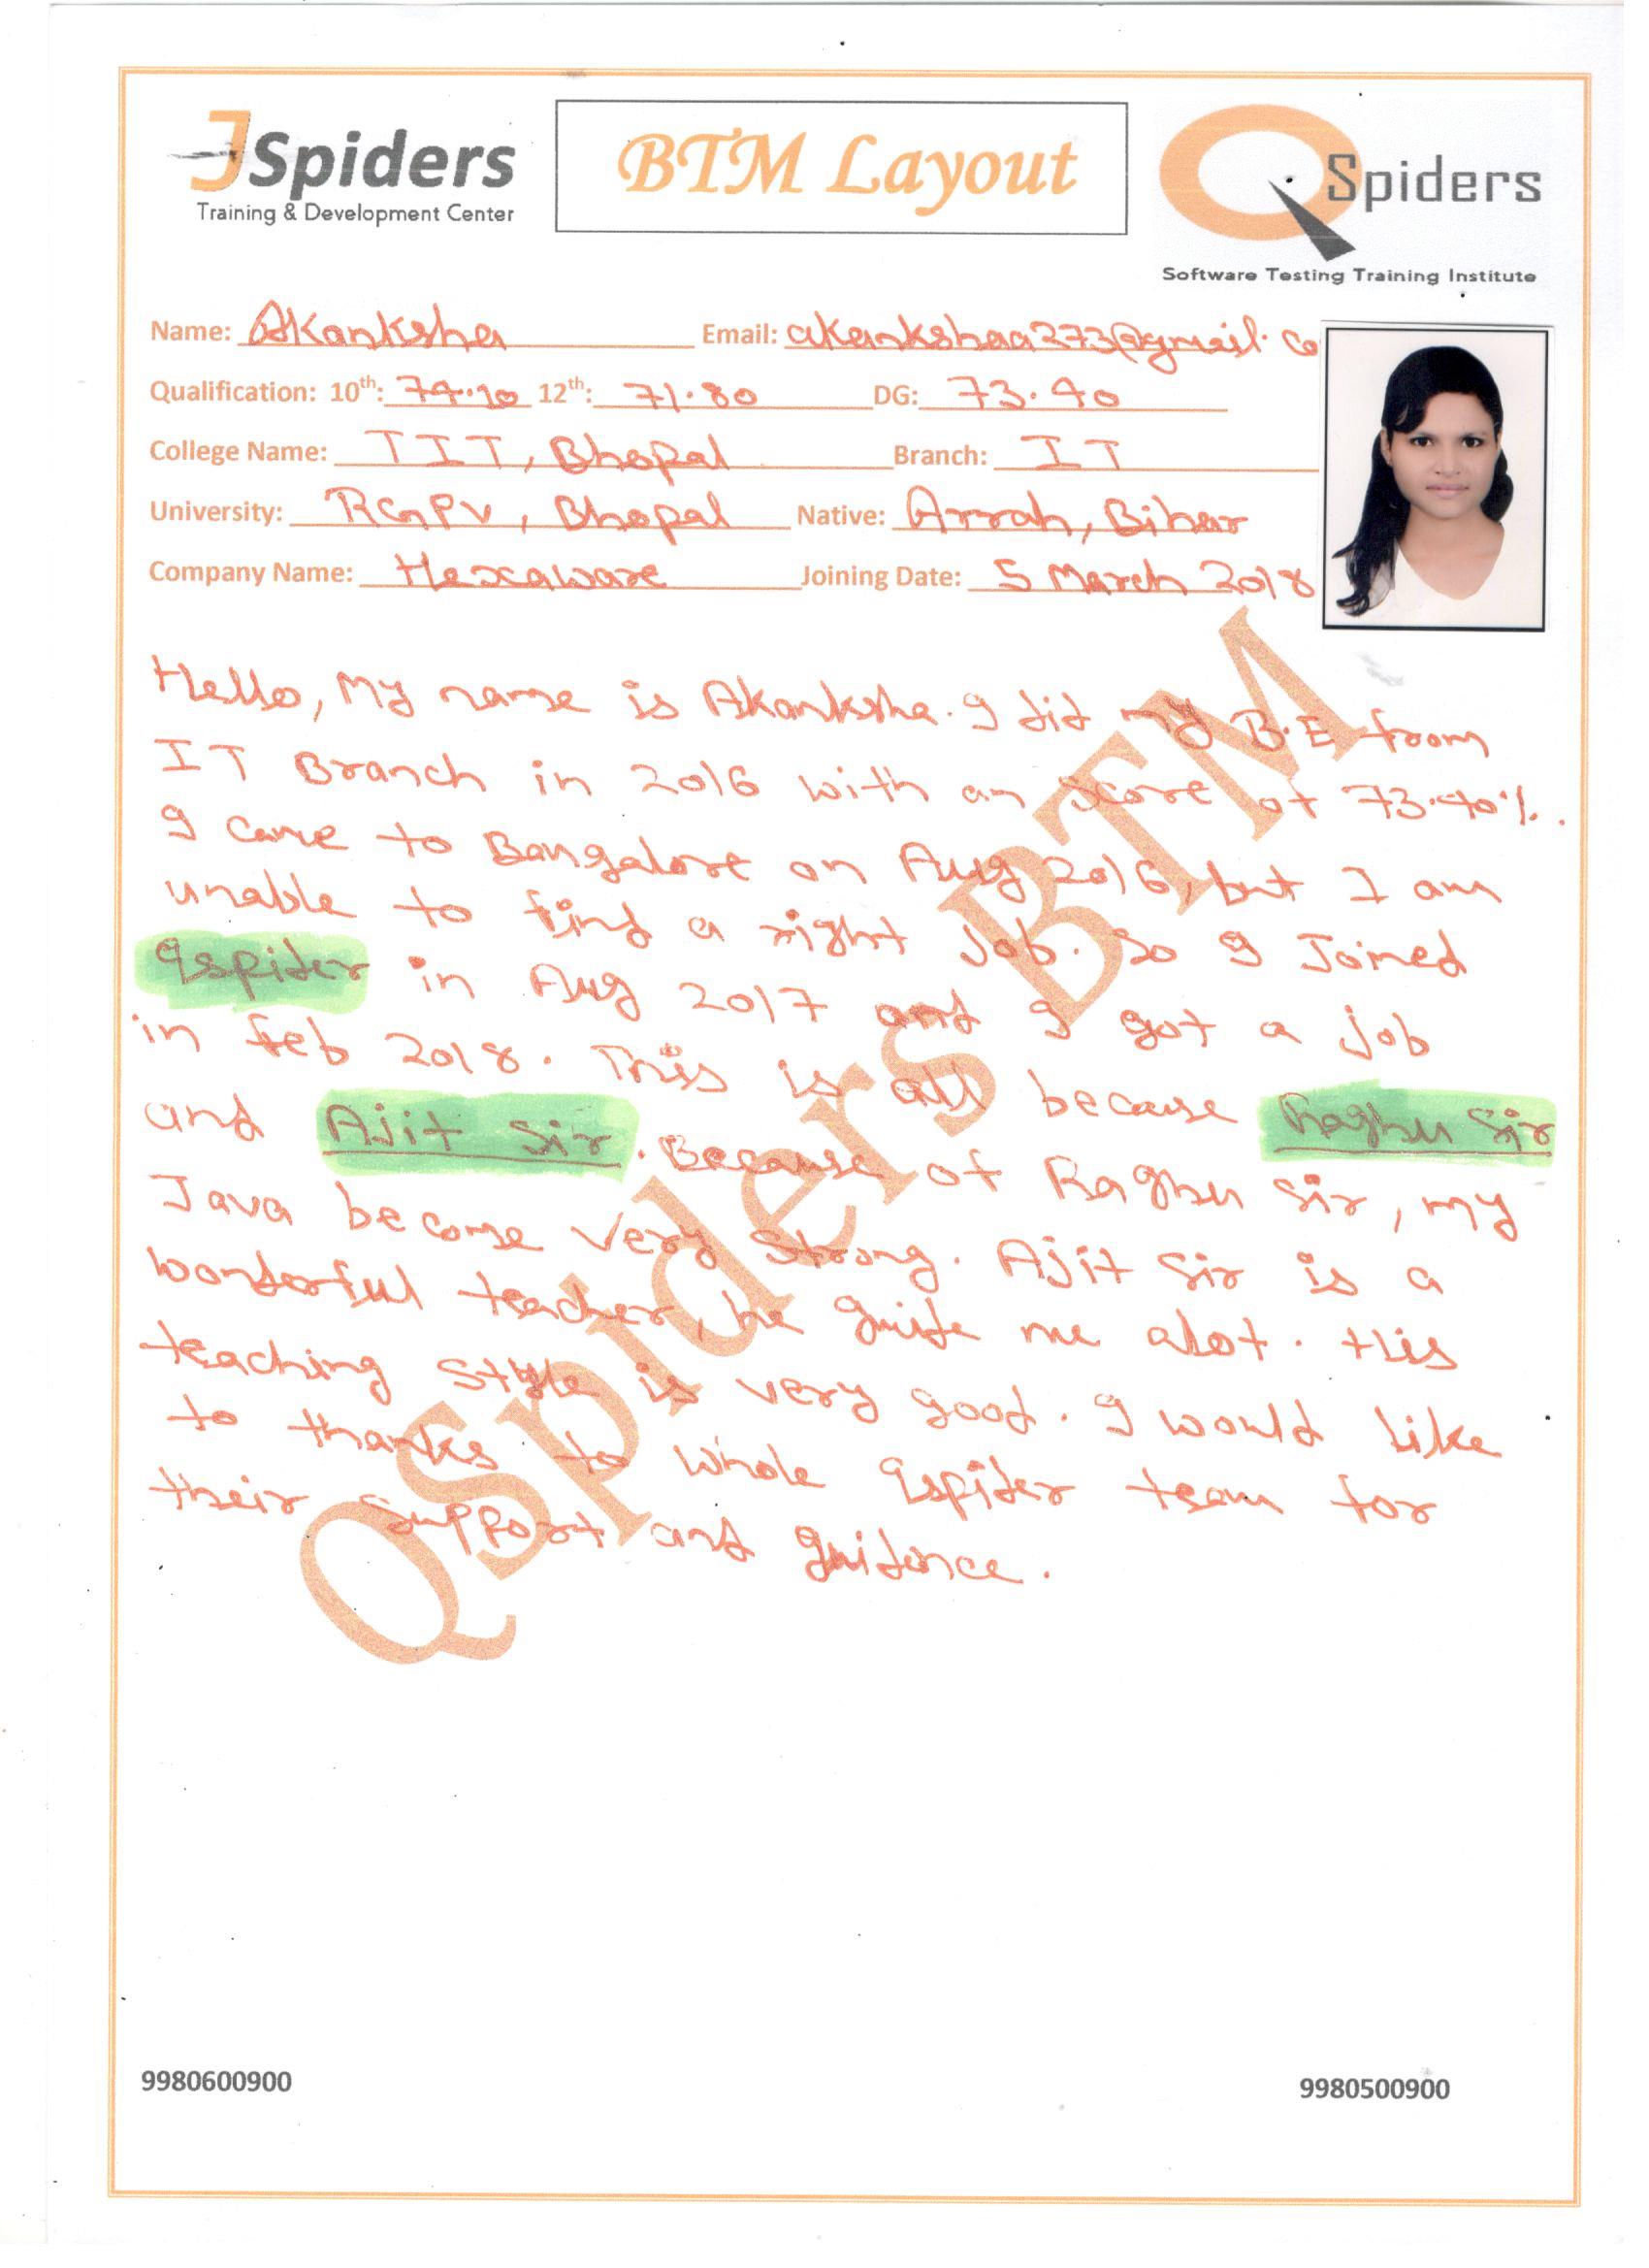 JSpiders
Training & Development Center
BTM Layout
QSpiders
Software Testing Training Institute
Name: Akanksha Email: akankshaa273@gmail.co
Qualification: 10th: 74.10 12th: 71.80 DG: 73.40
College Name: TIT, Bhopal Branch: IT
University: RGPV, Bhopal Native: Arrah, Bihar
Company Name: Hexaware Joining Date: 5 March 2018
Hello, My name is Akanksha. I did my B.E from
IT Branch in 2016 with an score of 73.40%.
I came to Bangalore on Aug 2016, but I am
unable to find a right job. So I Joined
Qspider in Aug 2017 and I got a job
in feb 2018. This is all because Raghu Sir
and Ajit Sir. Because of Raghu Sir, my
Java become very strong. Ajit Sir is a
wonderful teacher, he guide me alot. His
teaching style is very good. I would like
to thanks to whole Qspider team for
their support and guidence.
QSpiders BTM
9980600900 9980500900